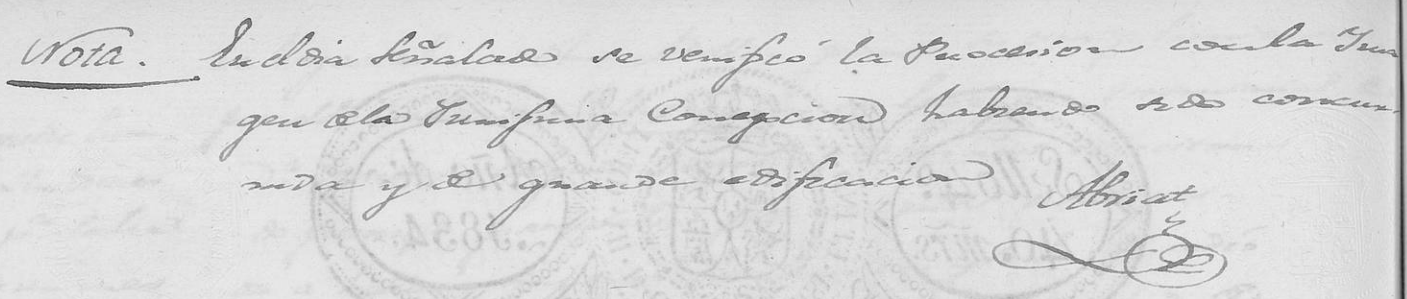 Nota. En el dia señalado se verificó la Procesion con la Ima
gen de la Purisima Concepcion habiendo sido concur-
rida y de grande edificacion
Abriat
40 mrs.
1834.